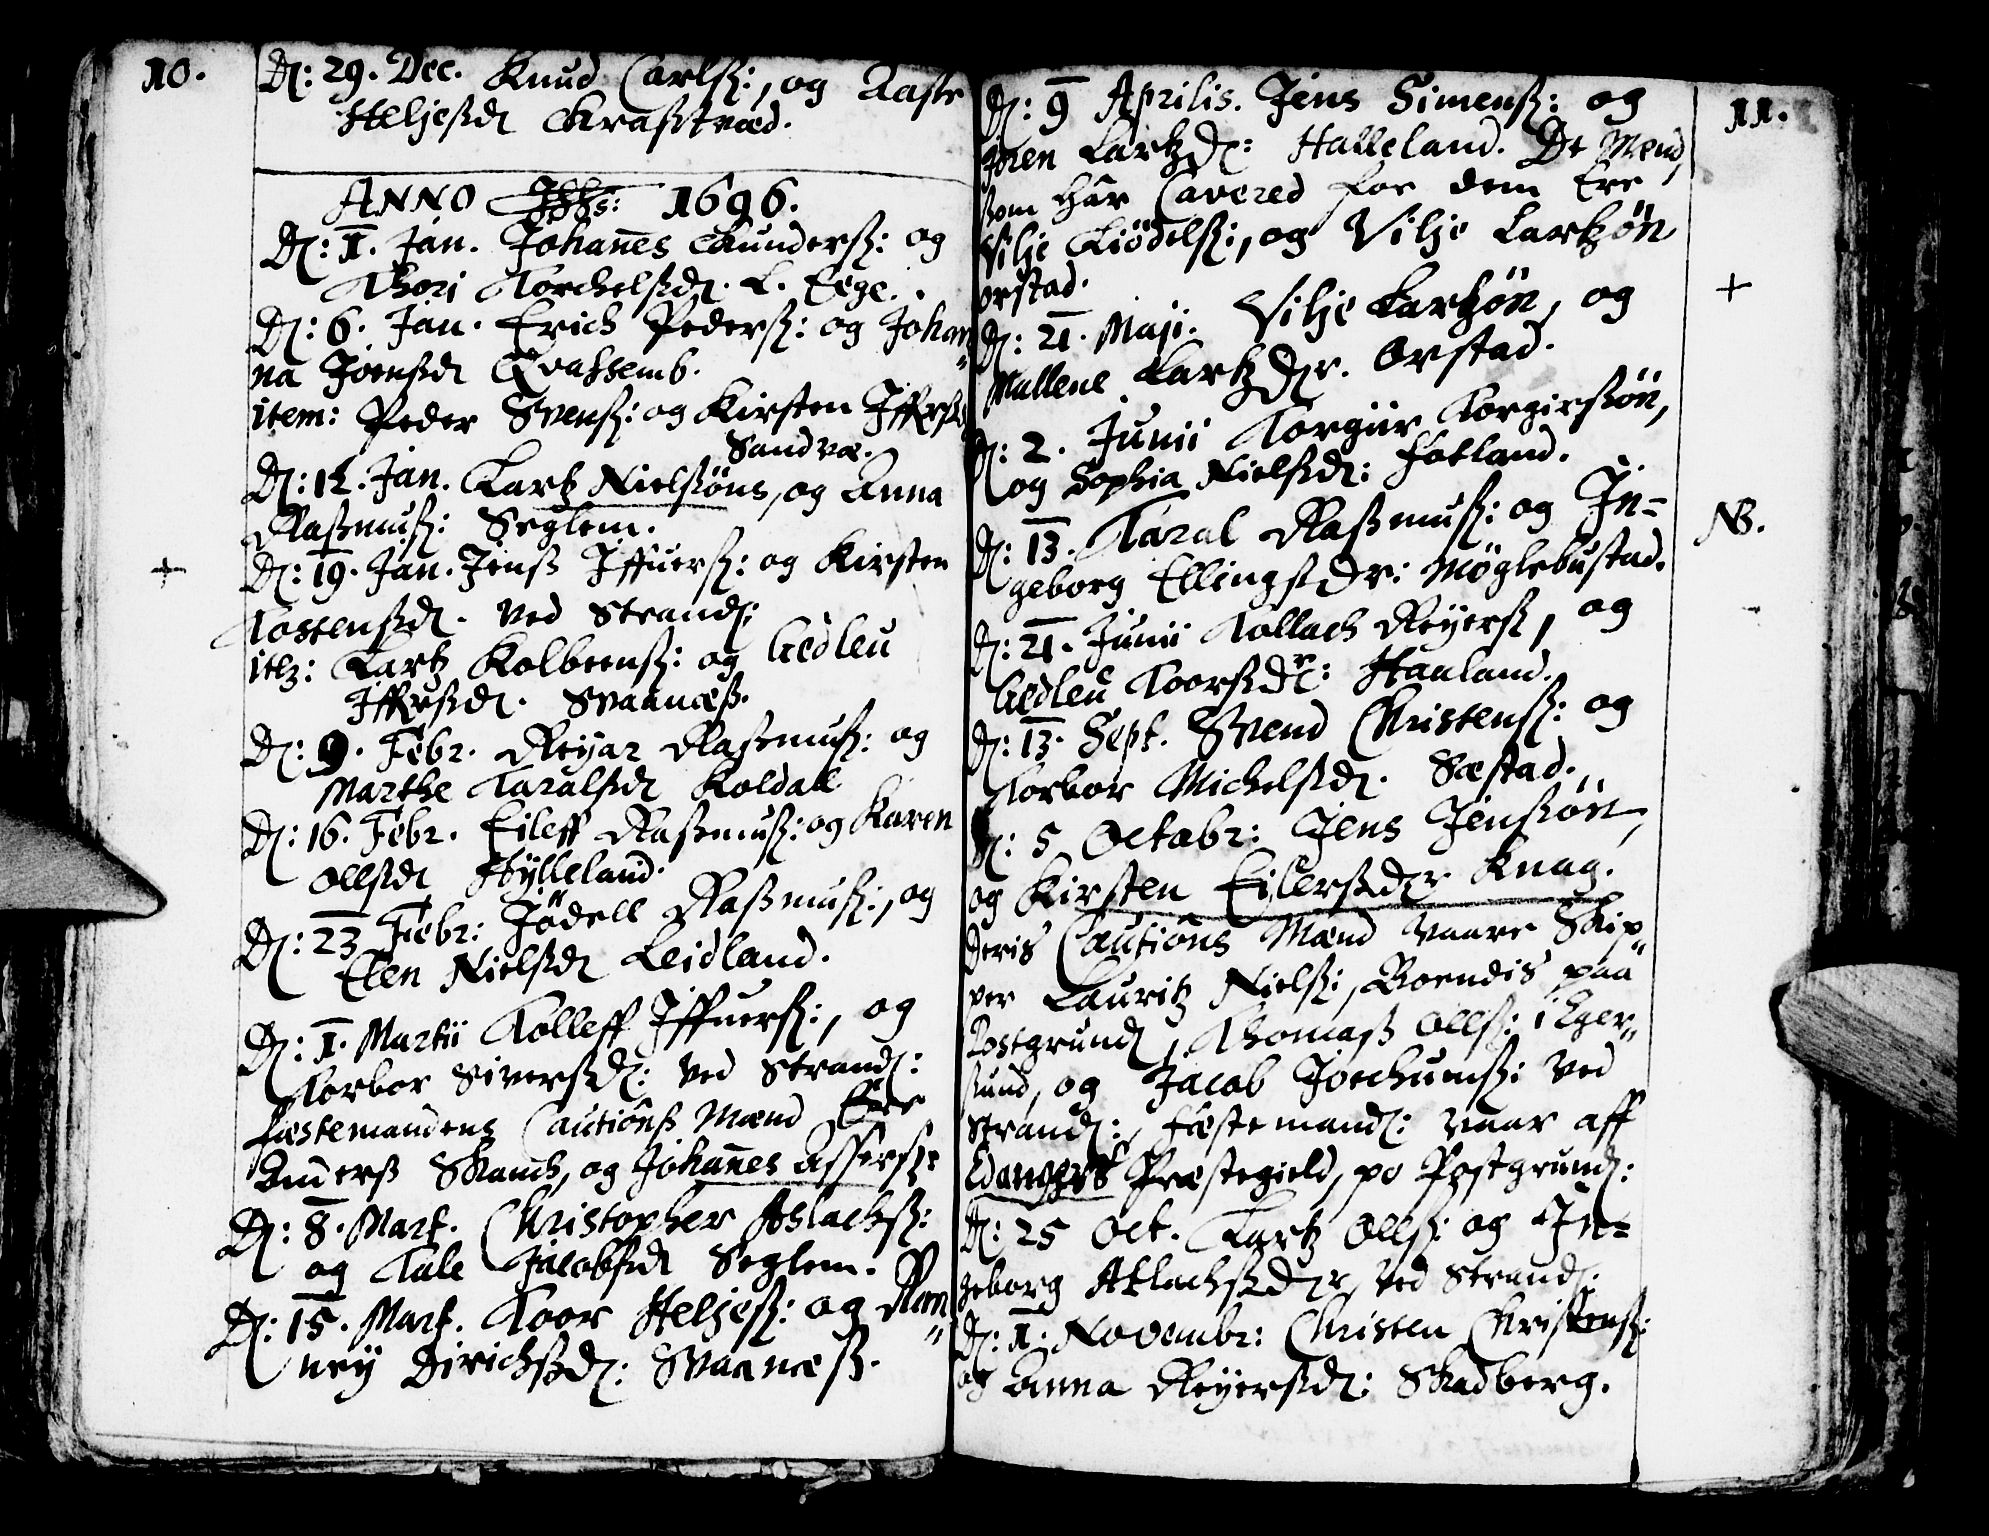 10.
D: 29. Dec. Knud Carls:, og Aaste
Heljesd: Krasstvæd.
ANNO 1696.
D: 1. Jan. Johanes Gunders: og
Thori Torchelsd: L. Eege.
D: 6. Jan. Erich Peders: og Johan„
na Joensd: Qvassemb.
item: Peder Svens: og Kirsten Iffrsd:
Sandvæ.
D: 12. Jan. Lartz Nielsöns, og Anna
Rasmus: Seglem.
+
D: 19. Jan. Jens Iffuers: og Kirsten
Tostensd: Ved Strand:
itz: Lartz Kolbeens: og Aedleu
Iffrsd: Svaanæs.
D: 9. Febr. Reyar Rasmus: og
Marthe Taralsd: Koldall
D: 16. Febr. Eileff Rasmus: og Karen
Ollsd: Hylleland.
D: 23 Febr: Jödell Rasmus:, og
Elen Nielsd: Leidland.
D: 1. Martii Tolleff Iffuers:, og
Torbor Siversd: Ved Strand:
fæstemandens Cautions Mænd Ere
Anders Skanch, og Johanes Assers:
D: 8. Mart. Christopher Aslachs:
og Tale Jacobsd: Seglem.
D: 15. Mart. Toor Heljes: og Ran„
ney Dirichsd: Svaanæss.
11.
D: 9 Aprilis. Jens Simens: og
Joren Lartzd: Halleland. De Mend,
som har Cavered for dem Ere
Vilje Kiödels:, og Vilje Lartzön
Orstad.
+
D: 21. Maji. Vilje Lartzön, og
Mallene Lartzdr. Orstad.
D: 2. Junii Torgiir Torgirsön,
og Sophia Nielsd: Fotland.
NB.
D: 13. Taral Rasmus: og In=
geborg Ellingsdr: Möglebustad.
D: 21. Junii Tollach Reyers, og
Aedleu Toorsdr: Haaland.
D: 13. Sept. Svend Christens: og
Torbor Michelsd: Sæstad.
D: 5 Octobr: Jens Jensön,
og Kirsten Eilersdr Knag.
Deris Cautions Mænd Vaare Skip„
per Lauritz Niels:, Boendis paa
Postgrund, Thomas Olls: i Eger„
sund, og Jacob Jochums: Ved
Strand:, fæstemand: Vaar aff
Edangers Præstegield, po Postgrund:
D: 25 Oct. Lartz Olls: og In=
geborg Atlachsdr, Ved Strand:
D: 1. Novembr: Christen Christens:
og Anna Reyersd: Skadberg.